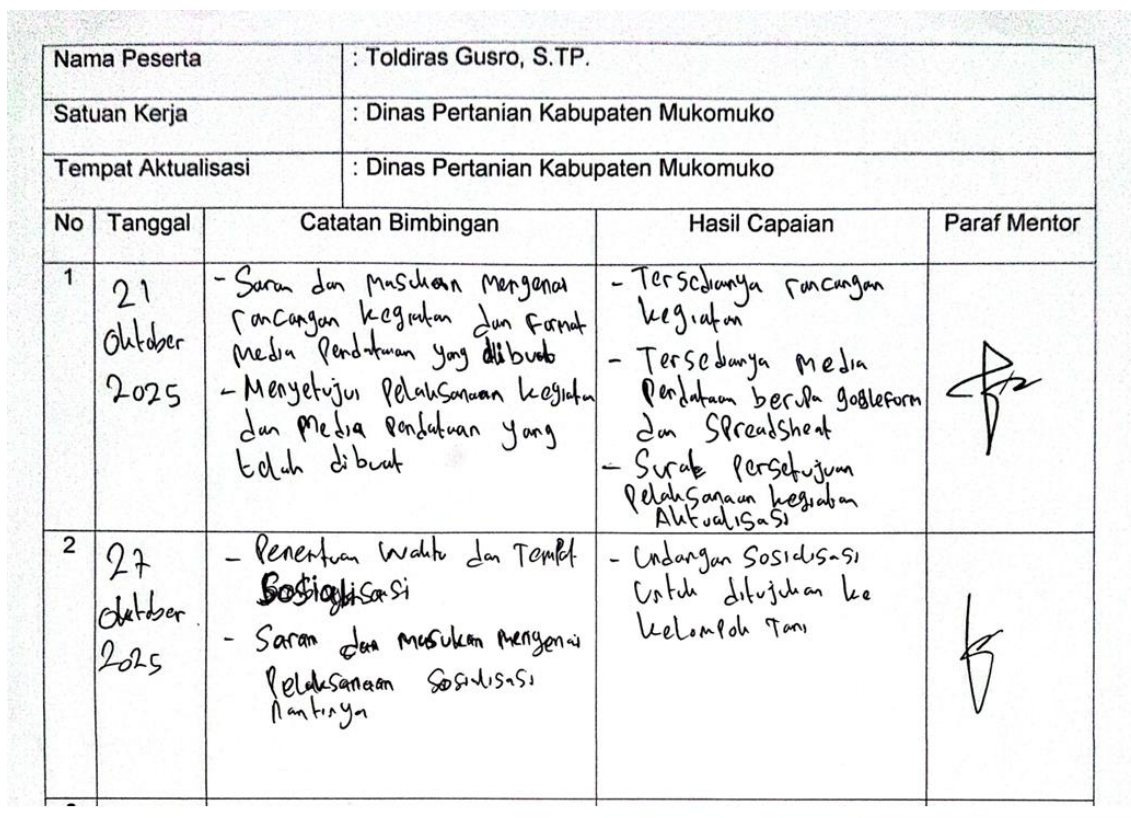 Nama Peserta : Toldiras Gusro, S.TP.
Satuan Kerja : Dinas Pertanian Kabupaten Mukomuko
Tempat Aktualisasi : Dinas Pertanian Kabupaten Mukomuko
No Tanggal Catatan Bimbingan Hasil Capaian Paraf Mentor
1
21
Oktober
2025
- Saran dan Masukan Mengenai
rancangan kegiatan dan format
Media Pendataan yang dibuat
- Menyetujui Pelaksanaan kegiatan
dan Media Pendataan yang
telah dibuat
- Tersedianya rancangan
kegiatan
- Tersedianya Media
Pendataan berupa googleform
dan Spreadsheet
- Surat Persetujuan
Pelaksanaan kegiatan
Aktualisasi
2
27
Oktober
2025
- Penentuan Waktu dan Tempat
Sosialisasi
- Saran dan masukan mengenai
Pelaksanaan Sosialisasi
nantinya
- Undangan Sosialisasi
Untuk ditujukan ke
Kelompok Tani